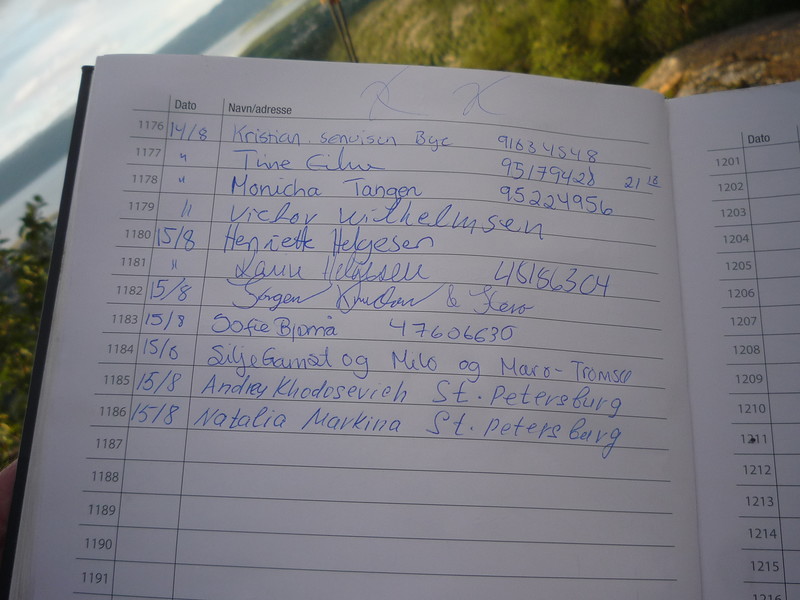 Dato Navn/adresse
1176 14/8 Kristian 91634548
1177 " Trine 95179428 21
1178 " Monicha Tangen 95224956
1179 " Victor Wilhelmsen
1180 15/8 Henriette Helgesen
1181 " Helgesen 48186304
1182 15/8 Jørgen &
1183 15/8 Sofie Bjørnå 47606630
1184 15/8 Silje Gamst og Milo og Maro - Tromsø
1185 15/8 Andrey Khodosevich St. Petersburg
1186 15/8 Natalia Markina St. Petersburg
1187
1188
1189
1190
1191
Dato
1201
1202
1203
1204
1205
1206
1207
1208
1209
1210
1211
1212
1213
1214
1215
1216